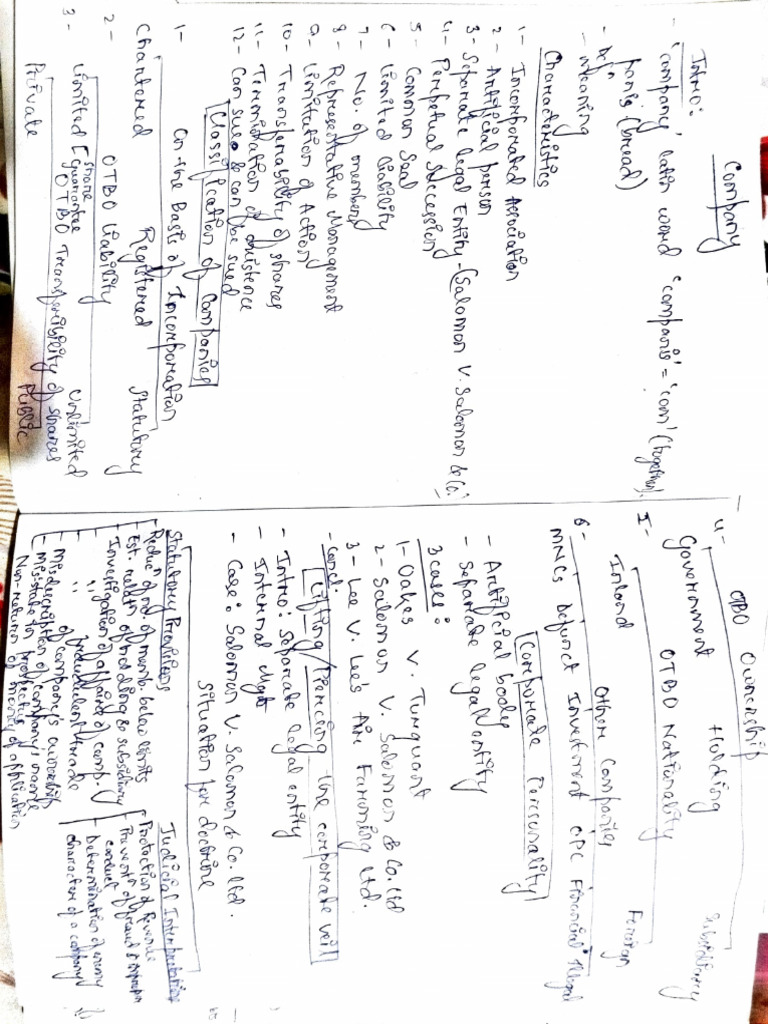 Company
Intro:
- 'company' latin word 'companis' = 'com' (together).
panis (bread)
- Defn
- meaning
Characteristics
1- Incorporated Association
2- Artificial person
3- Separate legal Entity - (Salomon V. Salomon & Co.
4- Perpetual Succession
5- Common Seal
6- Limited liability
7- No. of members
8- Representative Management
9- Limitation of Action
10- Transferability of shares
11- Termination of existence
12- Can sue & can be sued
Classification of Companies
1- On the Basis of Incorporation
Chartered Registered Statutory
2- OTBO Liability
Limited [share guarantee Unlimited
3- OTBO Transferibility of shares
Private Public
4- OTBO Ownership
Government Holding Subsidiary
5- OTBO Nationality
Inland Foreign
6- Other Companies
MNCs Defunct Investment OPC Financial Illegal
Corporate Personality
- Artificial body
- Separate legal entity
3 cases:
1- Oakes V. Turquant
2- Salomon V. Salomon & Co. ltd
3- Lee V. Lee's Air Farming Ltd.
- Concl.
Lifting/Piercing the corporate veil
- Intro: Separate legal entity
- Internal Mgt
- Case: Salomon V. Salomon & Co. ltd.
Situation for doctrine
Statutory Provisions
- Reduc of no. of memb. below limits
- Est. relatn of holding & subsidiary
- Investigation of affairs of comp.
- " " fraudulent trade
of company's ownership
- Misdescription of company's name
- Misstate for prospectus
Non-return of money of application
Judicial Interpretation
- Protection of Revenue
- Prevent of fraud & improper
conduct
- Determination of enemy
character of a company